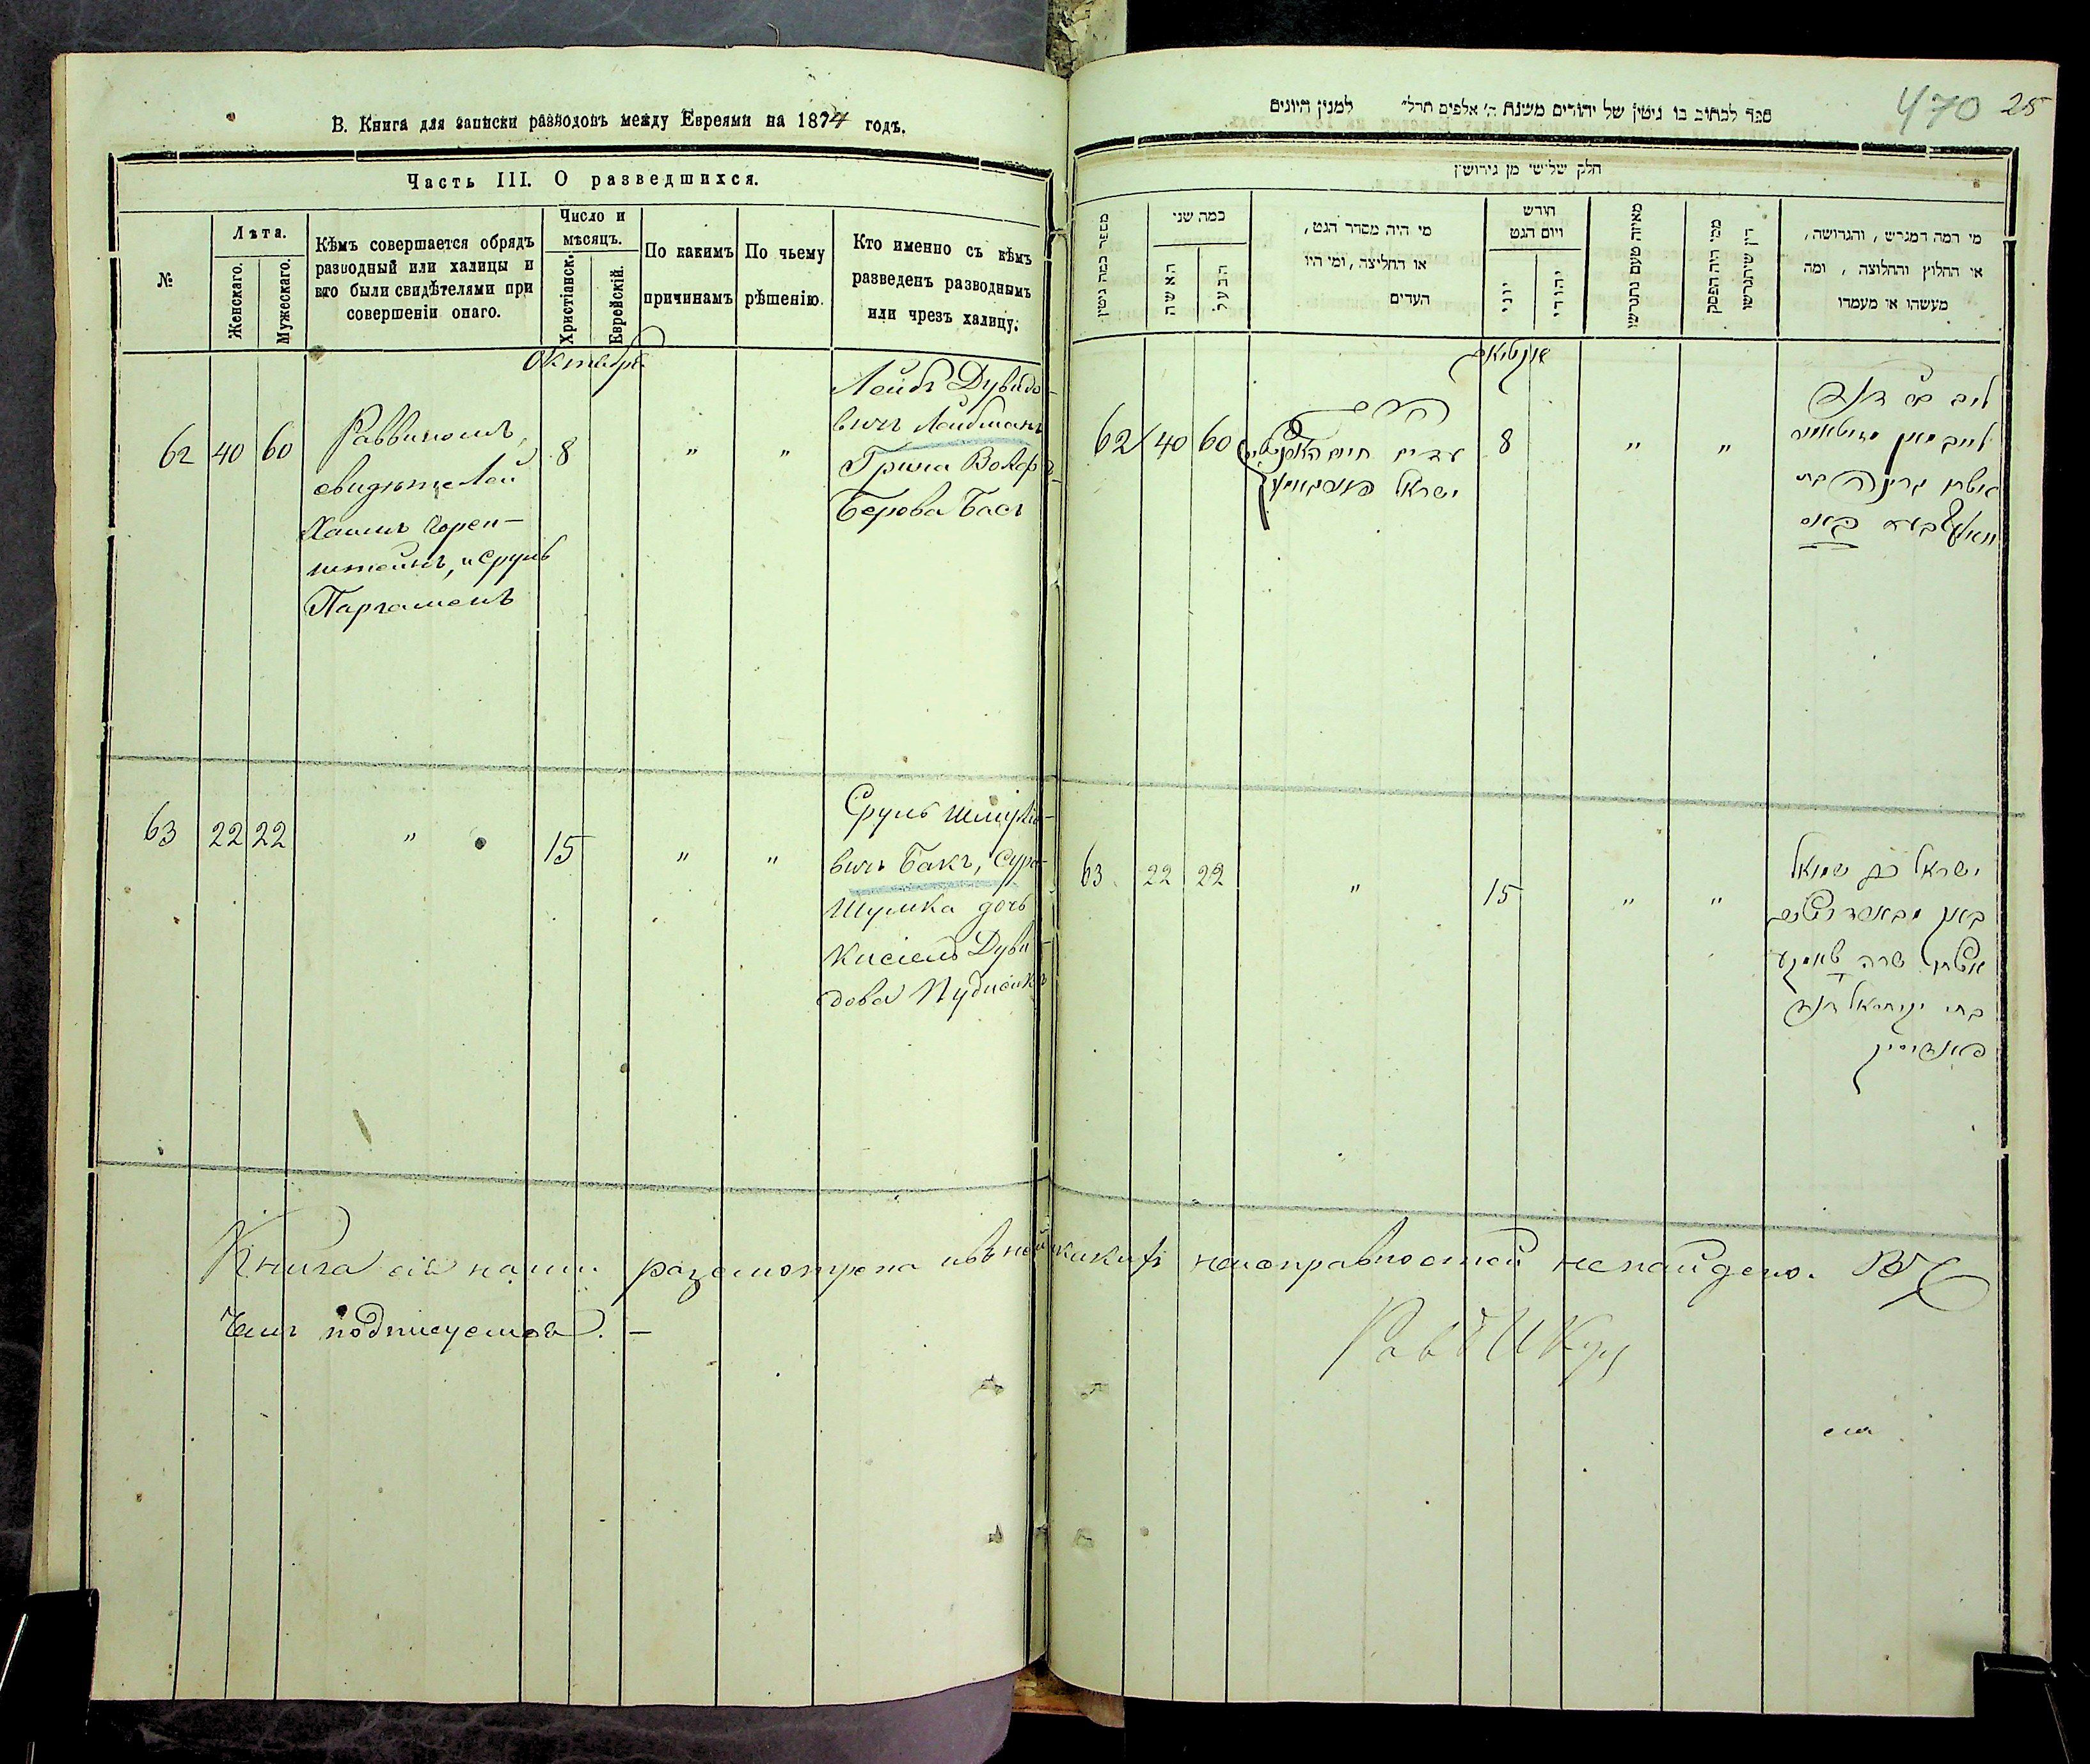 В. Книга для записки разводовъ между Евреями на 1874 годъ.
Часть III. О разведшихся.
№
Лѣта.
Женскаго.
Мужескаго.
Кѣмъ совершается обрядъ
разводный или халицы и
кто были свидѣтелями при
совершеніи онаго.
Число и
мѣсяцъ.
Христіанск.
Еврейскій.
По какимъ
причинамъ
По чьему
рѣшенію.
Кто именно съ кѣмъ
разведенъ разводнымъ
или чрезъ халицу.
Октябрь
62 40 60
Раввиномъ,
свидѣтелей
Хаимъ Горен-
штейнъ, и Сруль
Паргаменъ
8 " "
Лейбъ Дувидо-
вичъ Лейбманъ
Грина Волфъ
Берова Басъ
63 22 22 " 15 " "
Сруль Шмулѣ-
вичъ Бакъ, Сура
Шумка дочь
Кисіель Дуви-
дова
Книга сія нами разсмотрена и въ ней никакихъ неисправностей ненайдено. Въ
чемъ подписуемся. —
470 25
ספר לכתוב בו גיטין של יהודים משנת ה' אלפים תרל" למנין היונים
חלק שלישי מן גירושין
מספר כמה גיטין
כמה שני
האשה
הבעל
מי היה מסדר הגט,
או החליצה, ומי היו
העדים
חורש
ויום הגט
יוני
יהודי
מאיזה טעם נתגרשו
ממי היה הפסק
דין שיתגרשו
מי המה המגרש, והגרושה,
או החלוץ והחלוצה, ומה
מעשהו או מעמדו
62 40 60
עדים חיים
ישראל
8 " "
ליב בן דוד
לייבמאן
אשתו גרינה בת
באס
63 22 22 " 15 " "
ישראל בן שמואל
באק
אשתו שרה
בת יקותיאל דוד